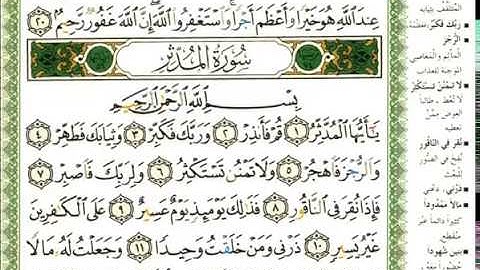 عِندَ اللَّهِ هُوَ خَيْرًا وَأَعْظَمَ أَجْرًا وَاسْتَغْفِرُوا اللَّهَ إِنَّ اللَّهَ غَفُورٌ رَّحِيمٌ ٢٠
سُورَةُ الْمُدَّثِّرِ
بِسْمِ اللَّهِ الرَّحْمَٰنِ الرَّحِيمِ
يَا أَيُّهَا الْمُدَّثِّرُ ١ قُمْ فَأَنذِرْ ٢ وَرَبَّكَ فَكَبِّرْ ٣ وَثِيَابَكَ فَطَهِّرْ ٤
وَالرُّجْزَ فَاهْجُرْ ٥ وَلَا تَمْنُن تَسْتَكْثِرُ ٦ وَلِرَبِّكَ فَاصْبِرْ ٧
فَإِذَا نُقِرَ فِي النَّاقُورِ ٨ فَذَٰلِكَ يَوْمَئِذٍ يَوْمٌ عَسِيرٌ ٩ عَلَى الْكَافِرِينَ
غَيْرُ يَسِيرٍ ١٠ ذَرْنِي وَمَنْ خَلَقْتُ وَحِيدًا ١١ وَجَعَلْتُ لَهُ مَالًا
المتلفف بثيابه
ربك فكبر
الرجز
المآثم والمعاصي
الموجبة للعذاب
لا تمنن تستكثر
لا تعط طالبا
العوض ممن
تعطيه
نقر في الناقور
نفخ في الصور
ذرني
دعني
مالا ممدودا
كثيرا دائما غير
منقطع
بنين شهودا